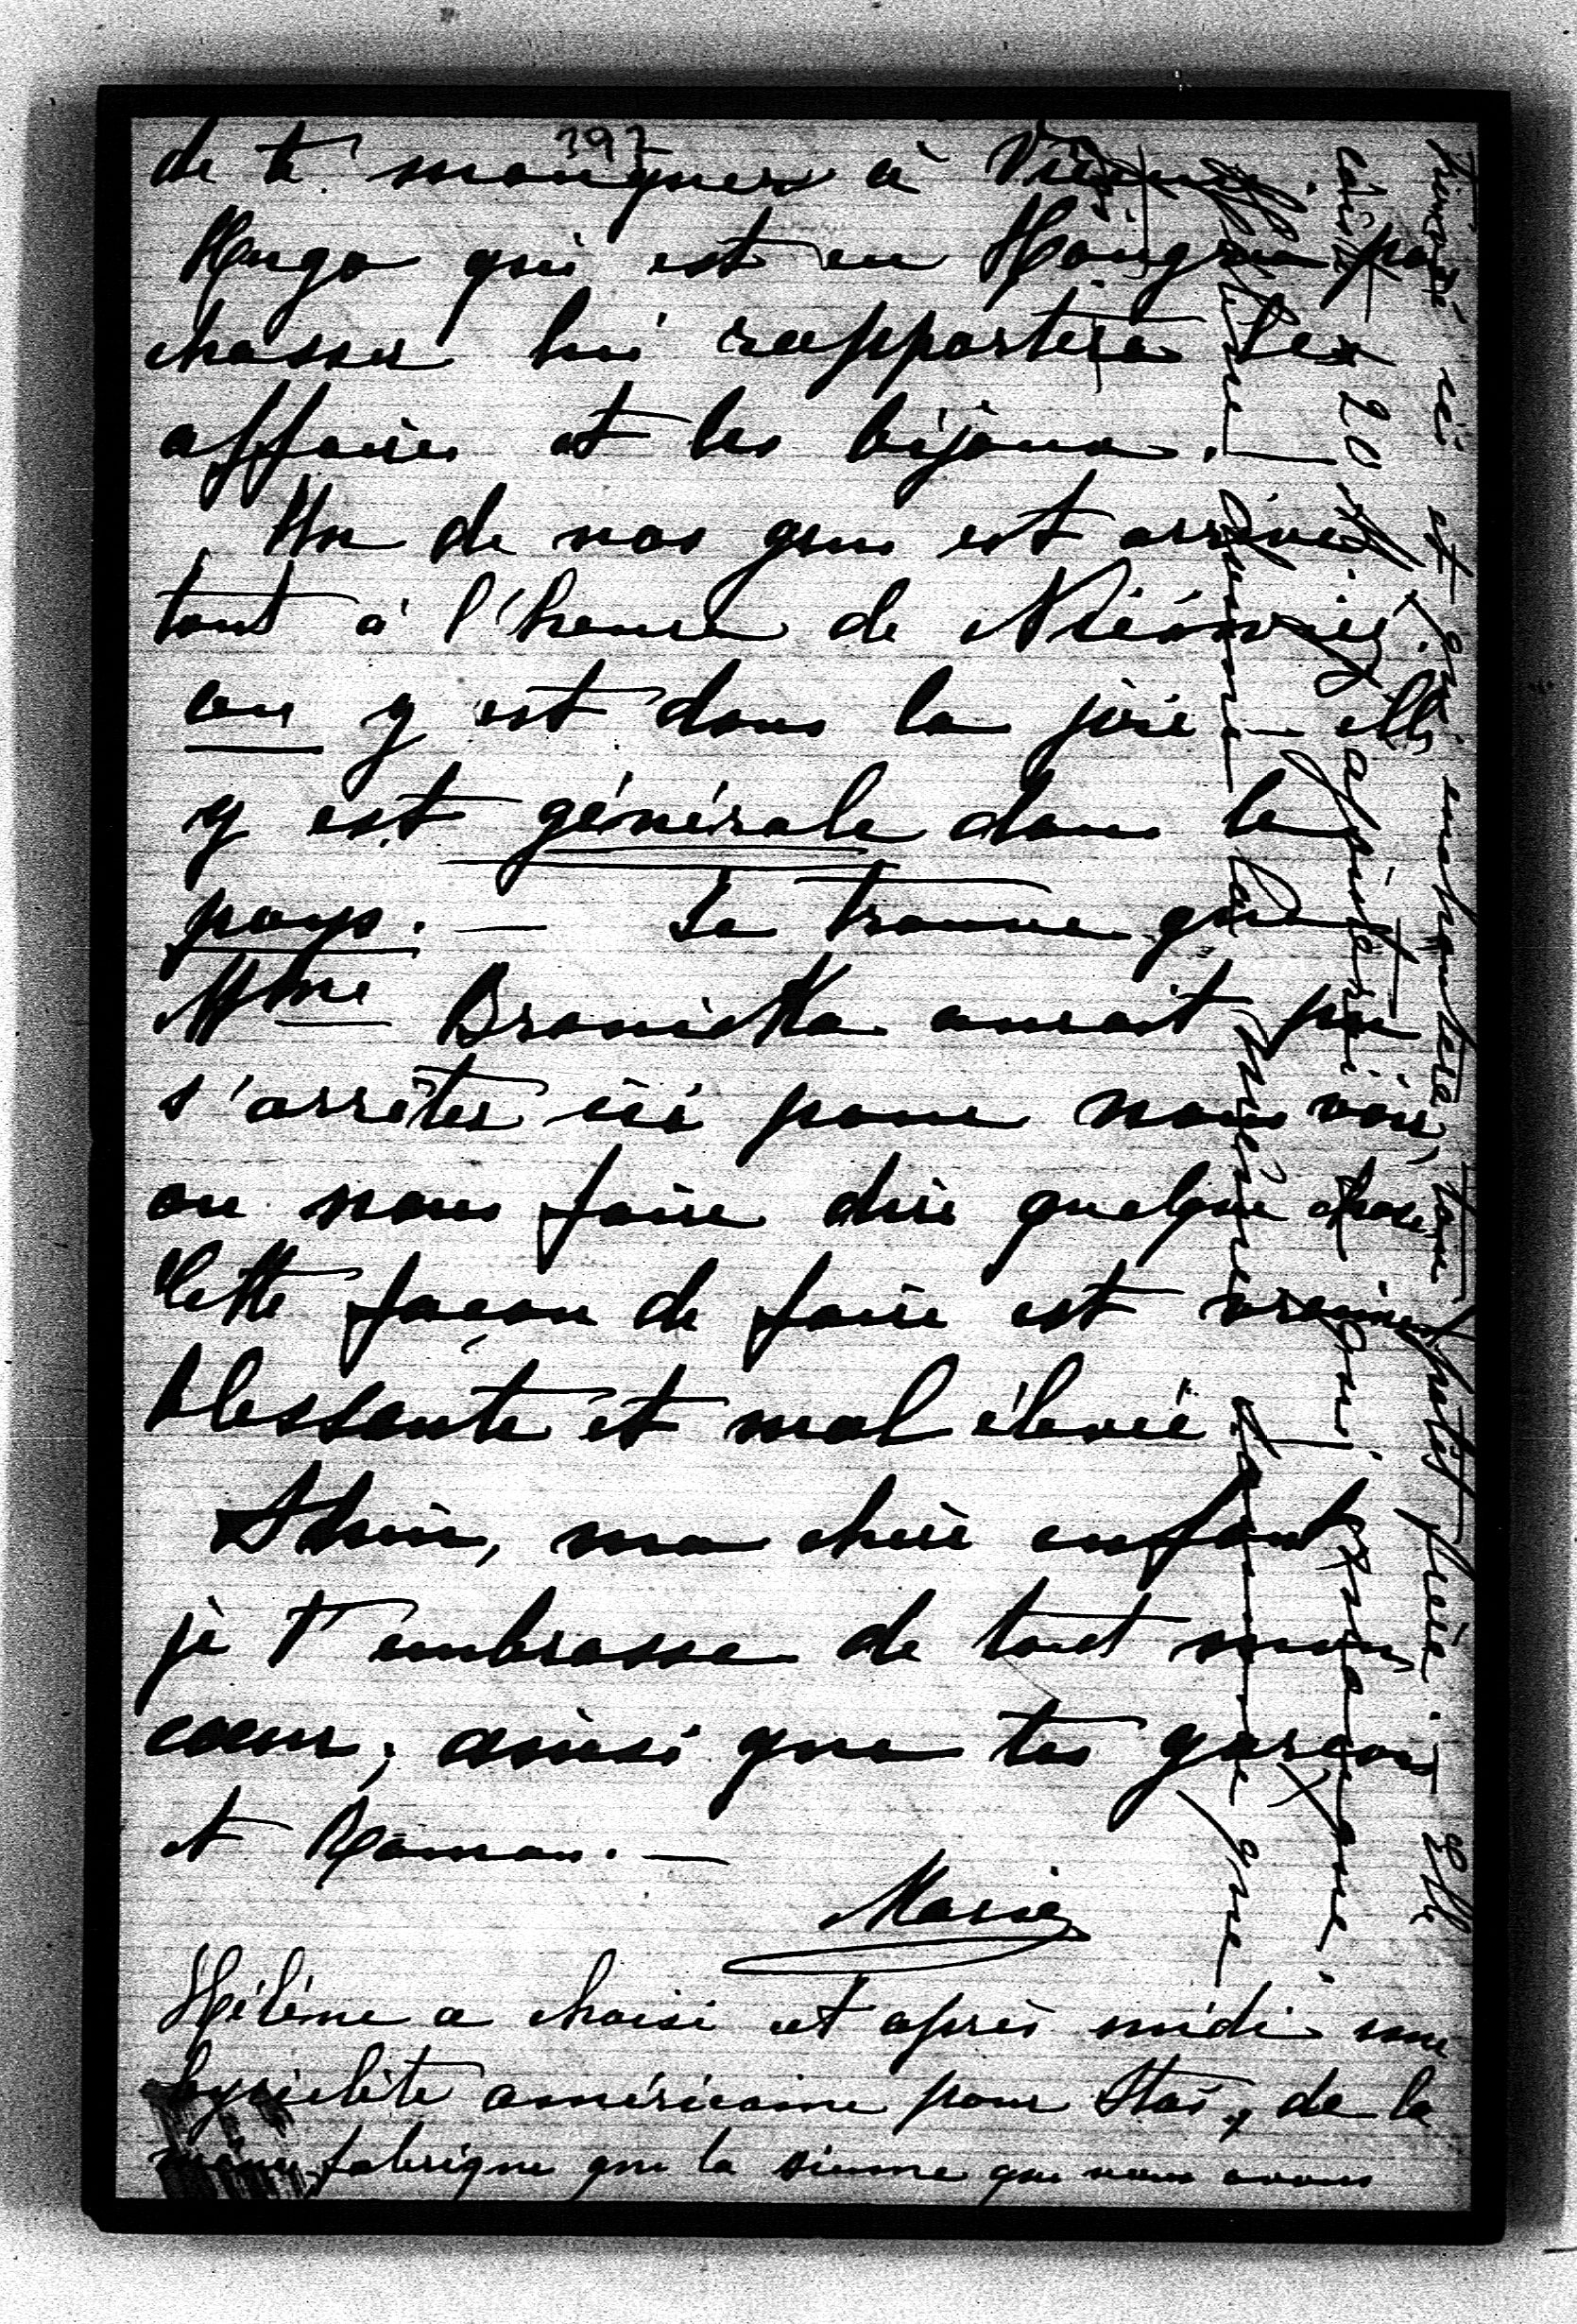 397
de te manquer à Vienne
Hugo qui est en Hongrie pour
chasser lui rapportera les
affaires et les bijoux.
Un de nos gens est arrivé
tout à l'heure de Niéswiez
on y est dans la joie — elle
y est générale dans le
pays. — Je trouve que
Mme Branicka aurait pu
s'arrêter ici pour nous voir,
ou nous faire dire quelque chose
Cette façon de faire est vraiment
blessante et mal élevée. —
Adieu, ma chère enfant
je t'embrasse de tout mon
cœur, ainsi que tes garçons
et Roman. —
Marie
Hélène a choisi cet après midi une
bycielète américaine pour Staś, de la
même fabrique que la sienne que nous avons
trouvé ici et qui enchantera ton petit frère. Elle
coûte 20 après
comme la même